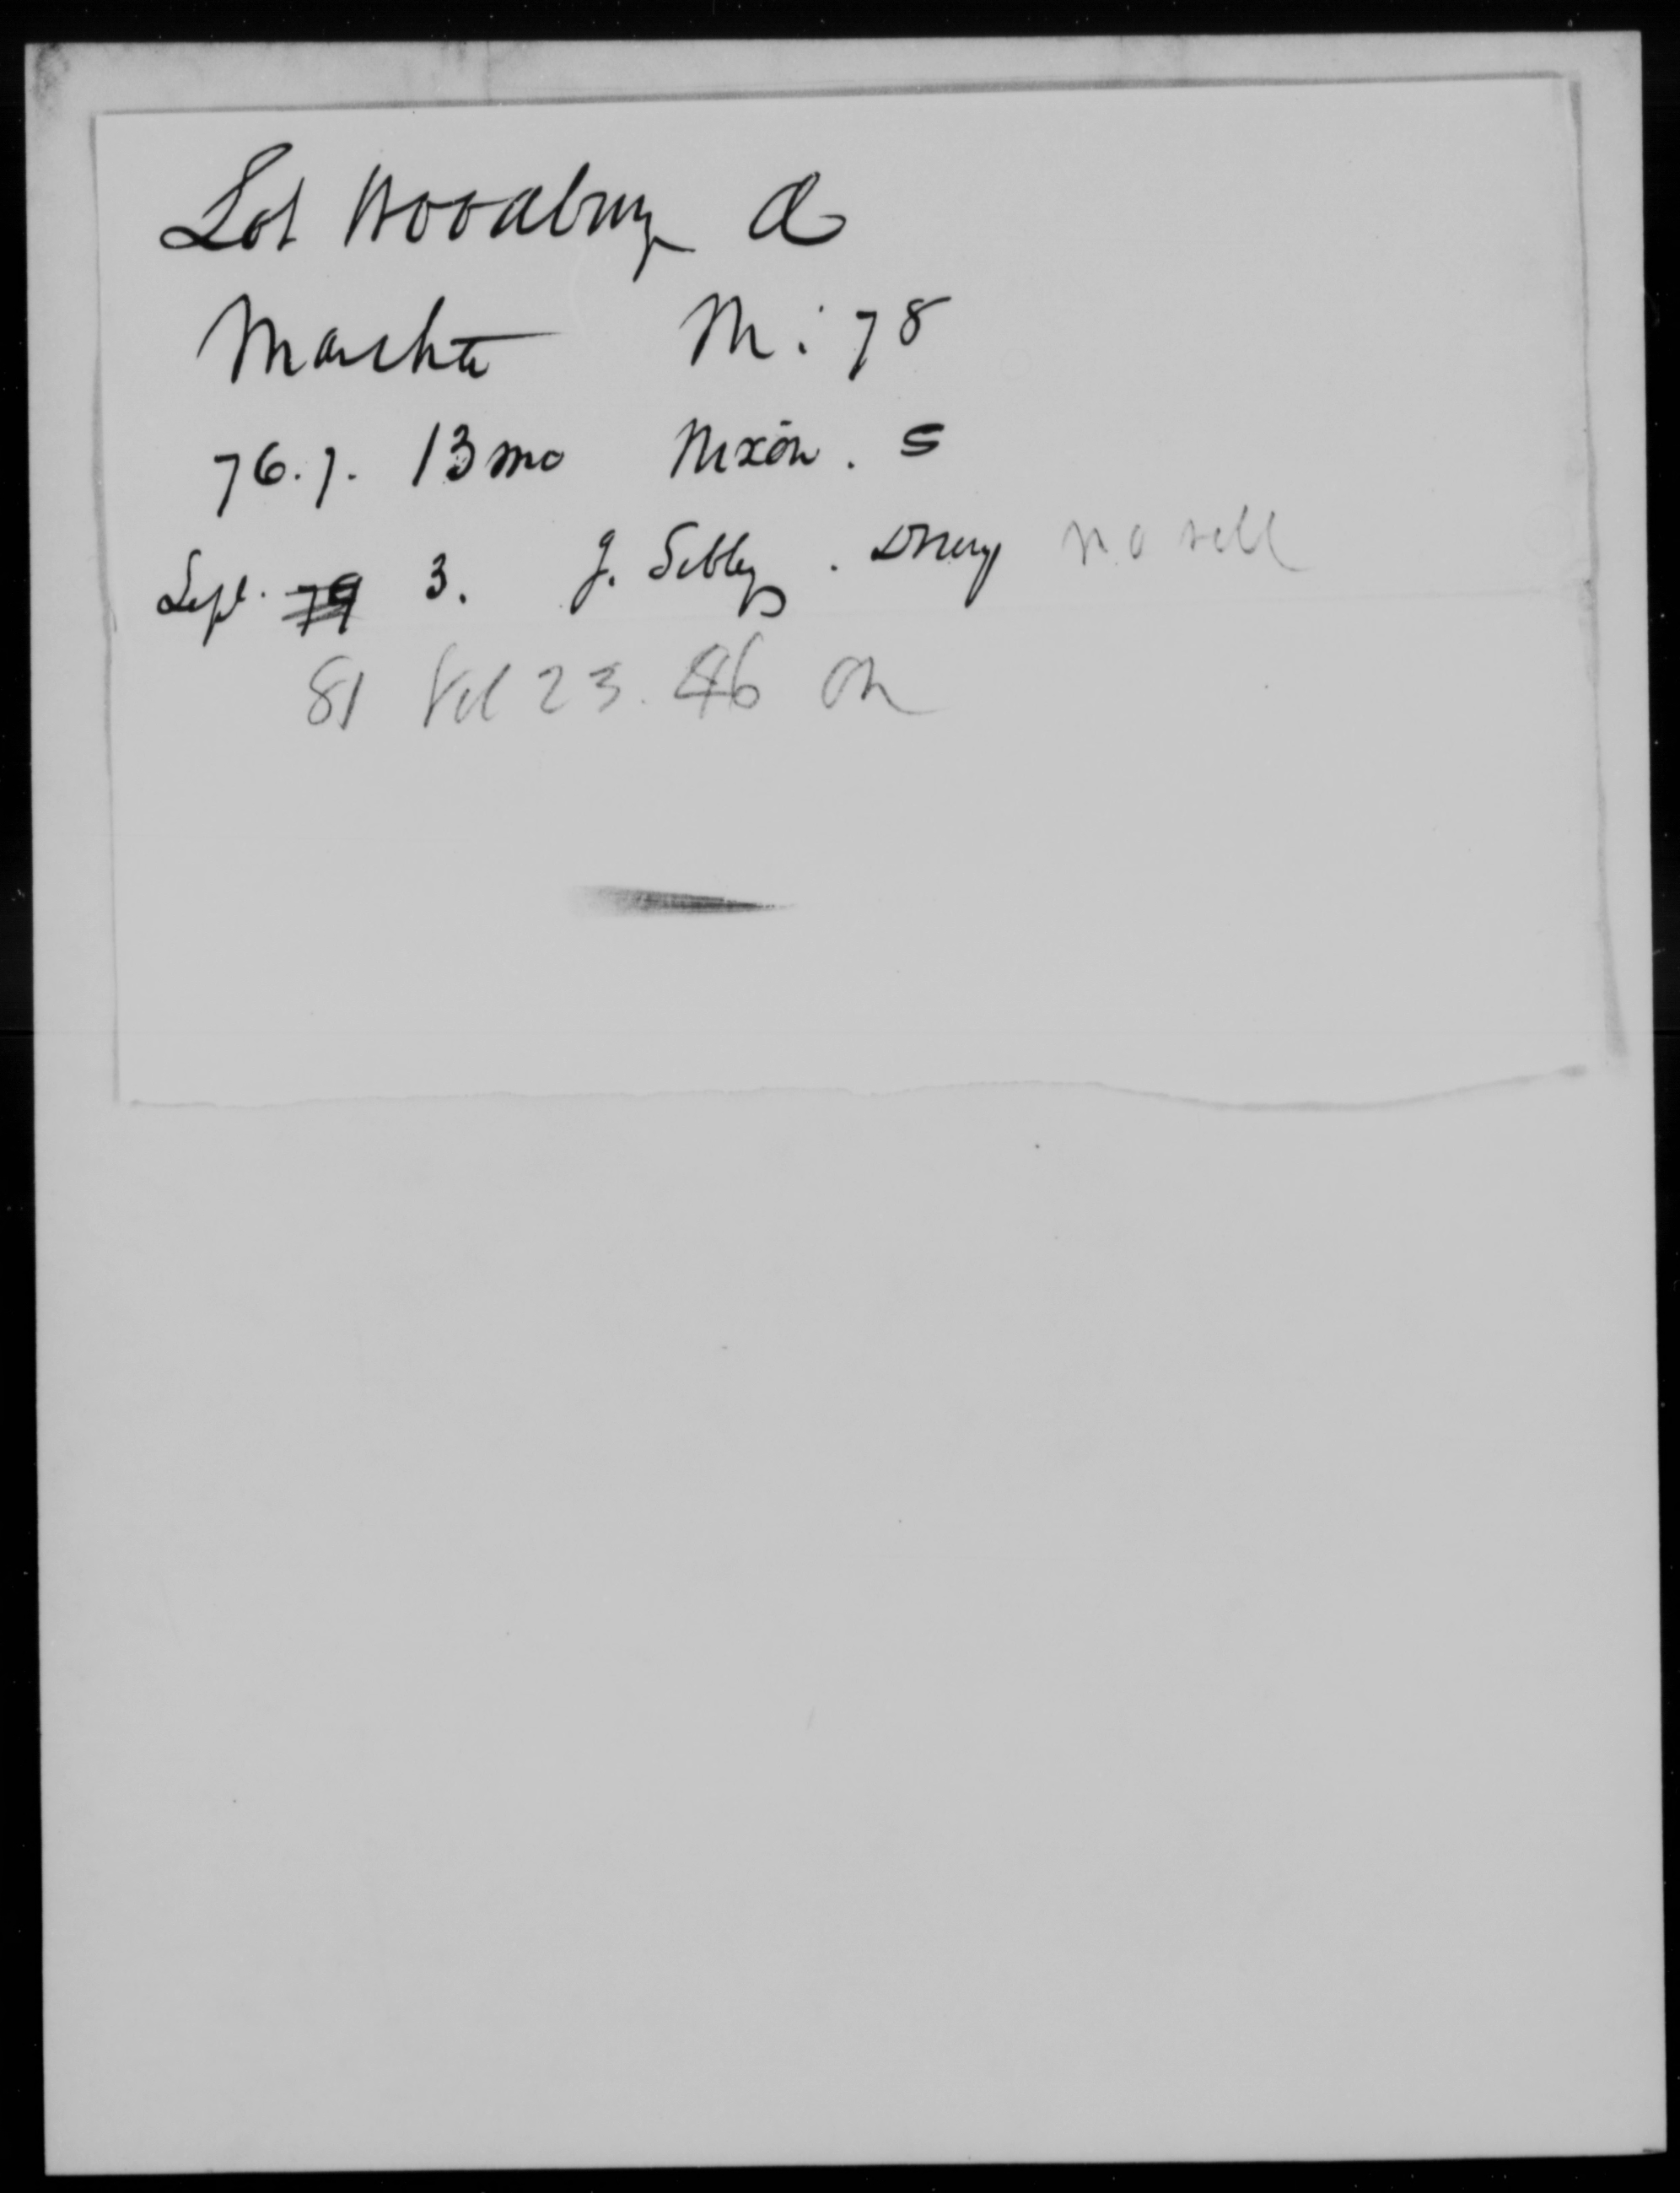 Lot Woodbury d
Martha M: 78
76. 7. 13 mo Nixon. S
Sept. 79 3. J. Sibley. Drury no rell
81 Vol 23. 46 On